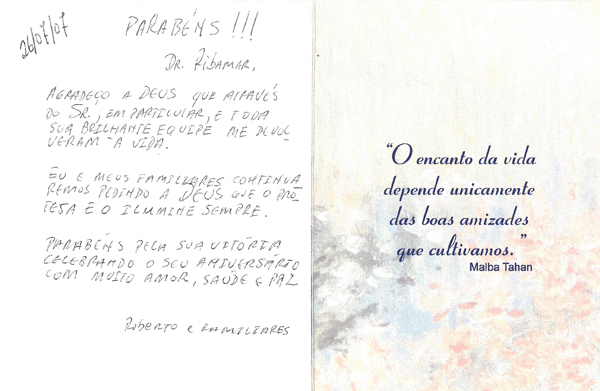 26/07/07
PARABÉNS!!!
DR. RIBAMAR,
AGRADEÇO A DEUS QUE ATRAVÉS
DO SR., EM PARTICULAR, E TODA
SUA BRILHANTE EQUIPE ME DEVOL
VERAM A VIDA.
EU E MEUS FAMILIARES CONTINUA
REMOS PEDINDO A DEUS QUE O PRO
TEJA E O ILUMINE SEMPRE.
PARABÉNS PELA SUA VITÓRIA
CELEBRANDO O SEU ANIVERSÁRIO
COM MUITO AMOR, SAÚDE E PAZ
ROBERTO E FAMILIARES
"O encanto da vida
depende unicamente
das boas amizades
que cultivamos."
Malba Tahan